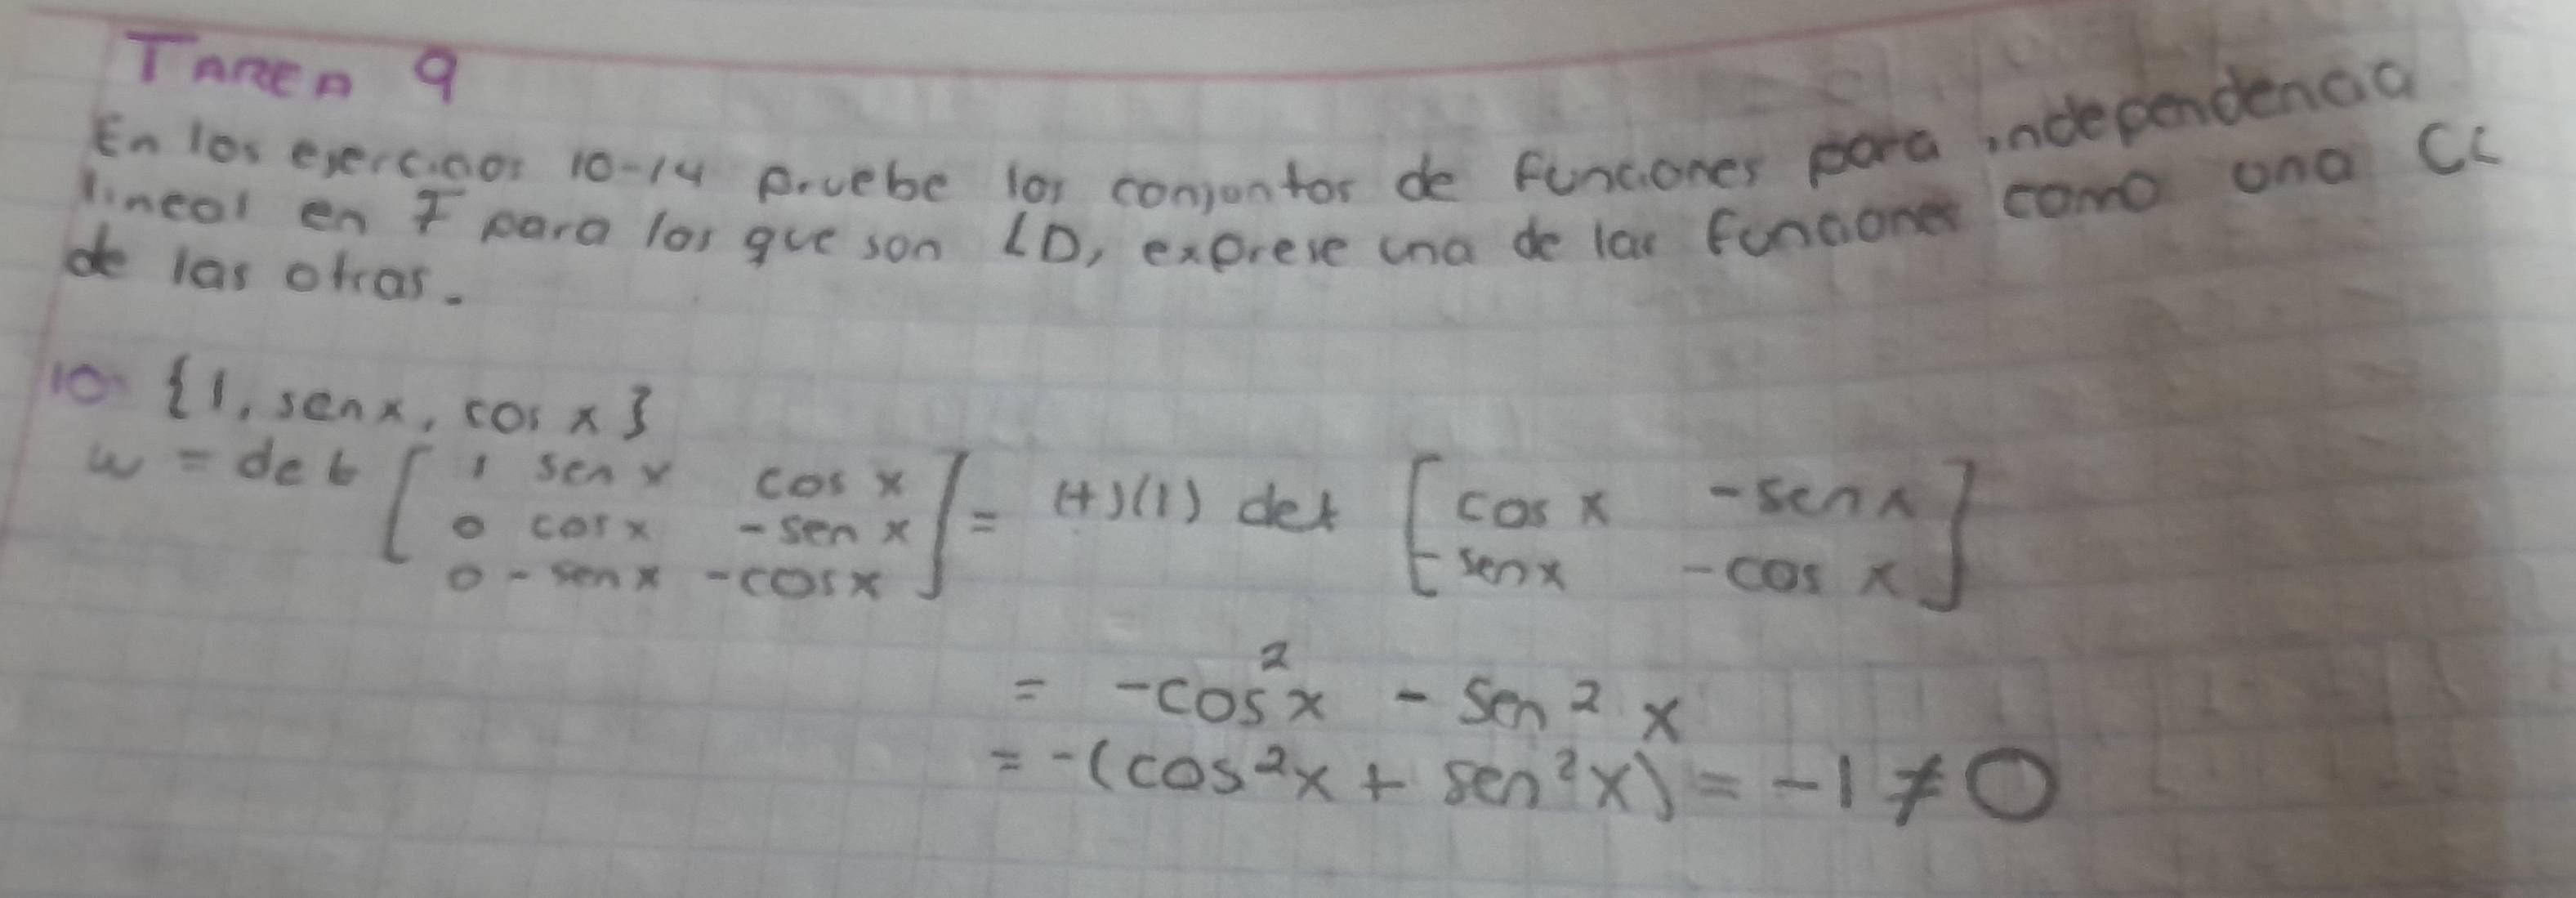 TAREA 9
En los ejercicios 10-14 pruebe los conjuntos de funciones para independencia
lineal en F para los que son LD, exprese una de las funciones como una CL
de las otras.
10 {1, sen x, cos x}
w = det [ 1 sen x cos x ] = (+)(1) det [ cos x -sen x ]
0 cos x -sen x
0 -sen x -cos x -sen x -cos x
= -cos²x - sen² x
= -(cos²x + sen²x) = -1 ≠ 0